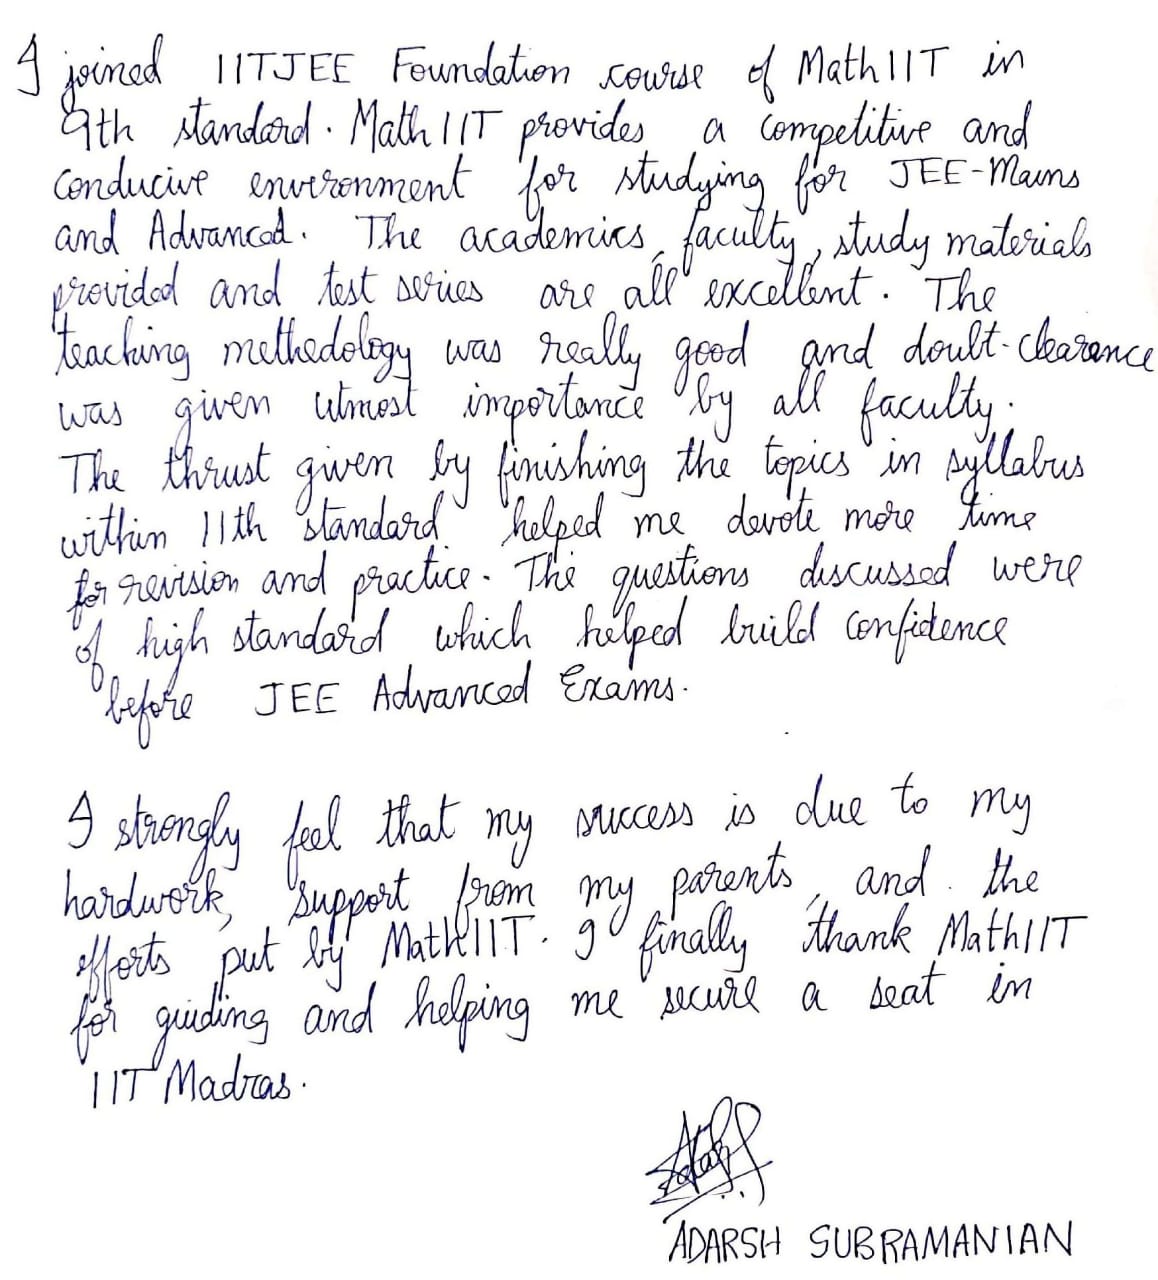 I joined IITJEE Foundation course of MathIIT in
9th standard. MathIIT provides a competitive and
conducive environment for studying for JEE-Mains
and Advanced. The academics, faculty, study materials
provided and test series are all excellent. The
teaching methedology was really good and doubt-clearance
was given utmost importance by all faculty.
The thrust given by finishing the topics in syllabus
within 11th standard helped me devote more time
for revision and practice. The questions discussed were
of high standard which helped build confidence
before JEE Advanced Exams.
I strongly feel that my success is due to my
hardwork, support from my parents, and the
efforts put by MathIIT. I finally thank MathIIT
for guiding and helping me secure a seat in
IIT Madras.
ADARSH SUBRAMANIAN